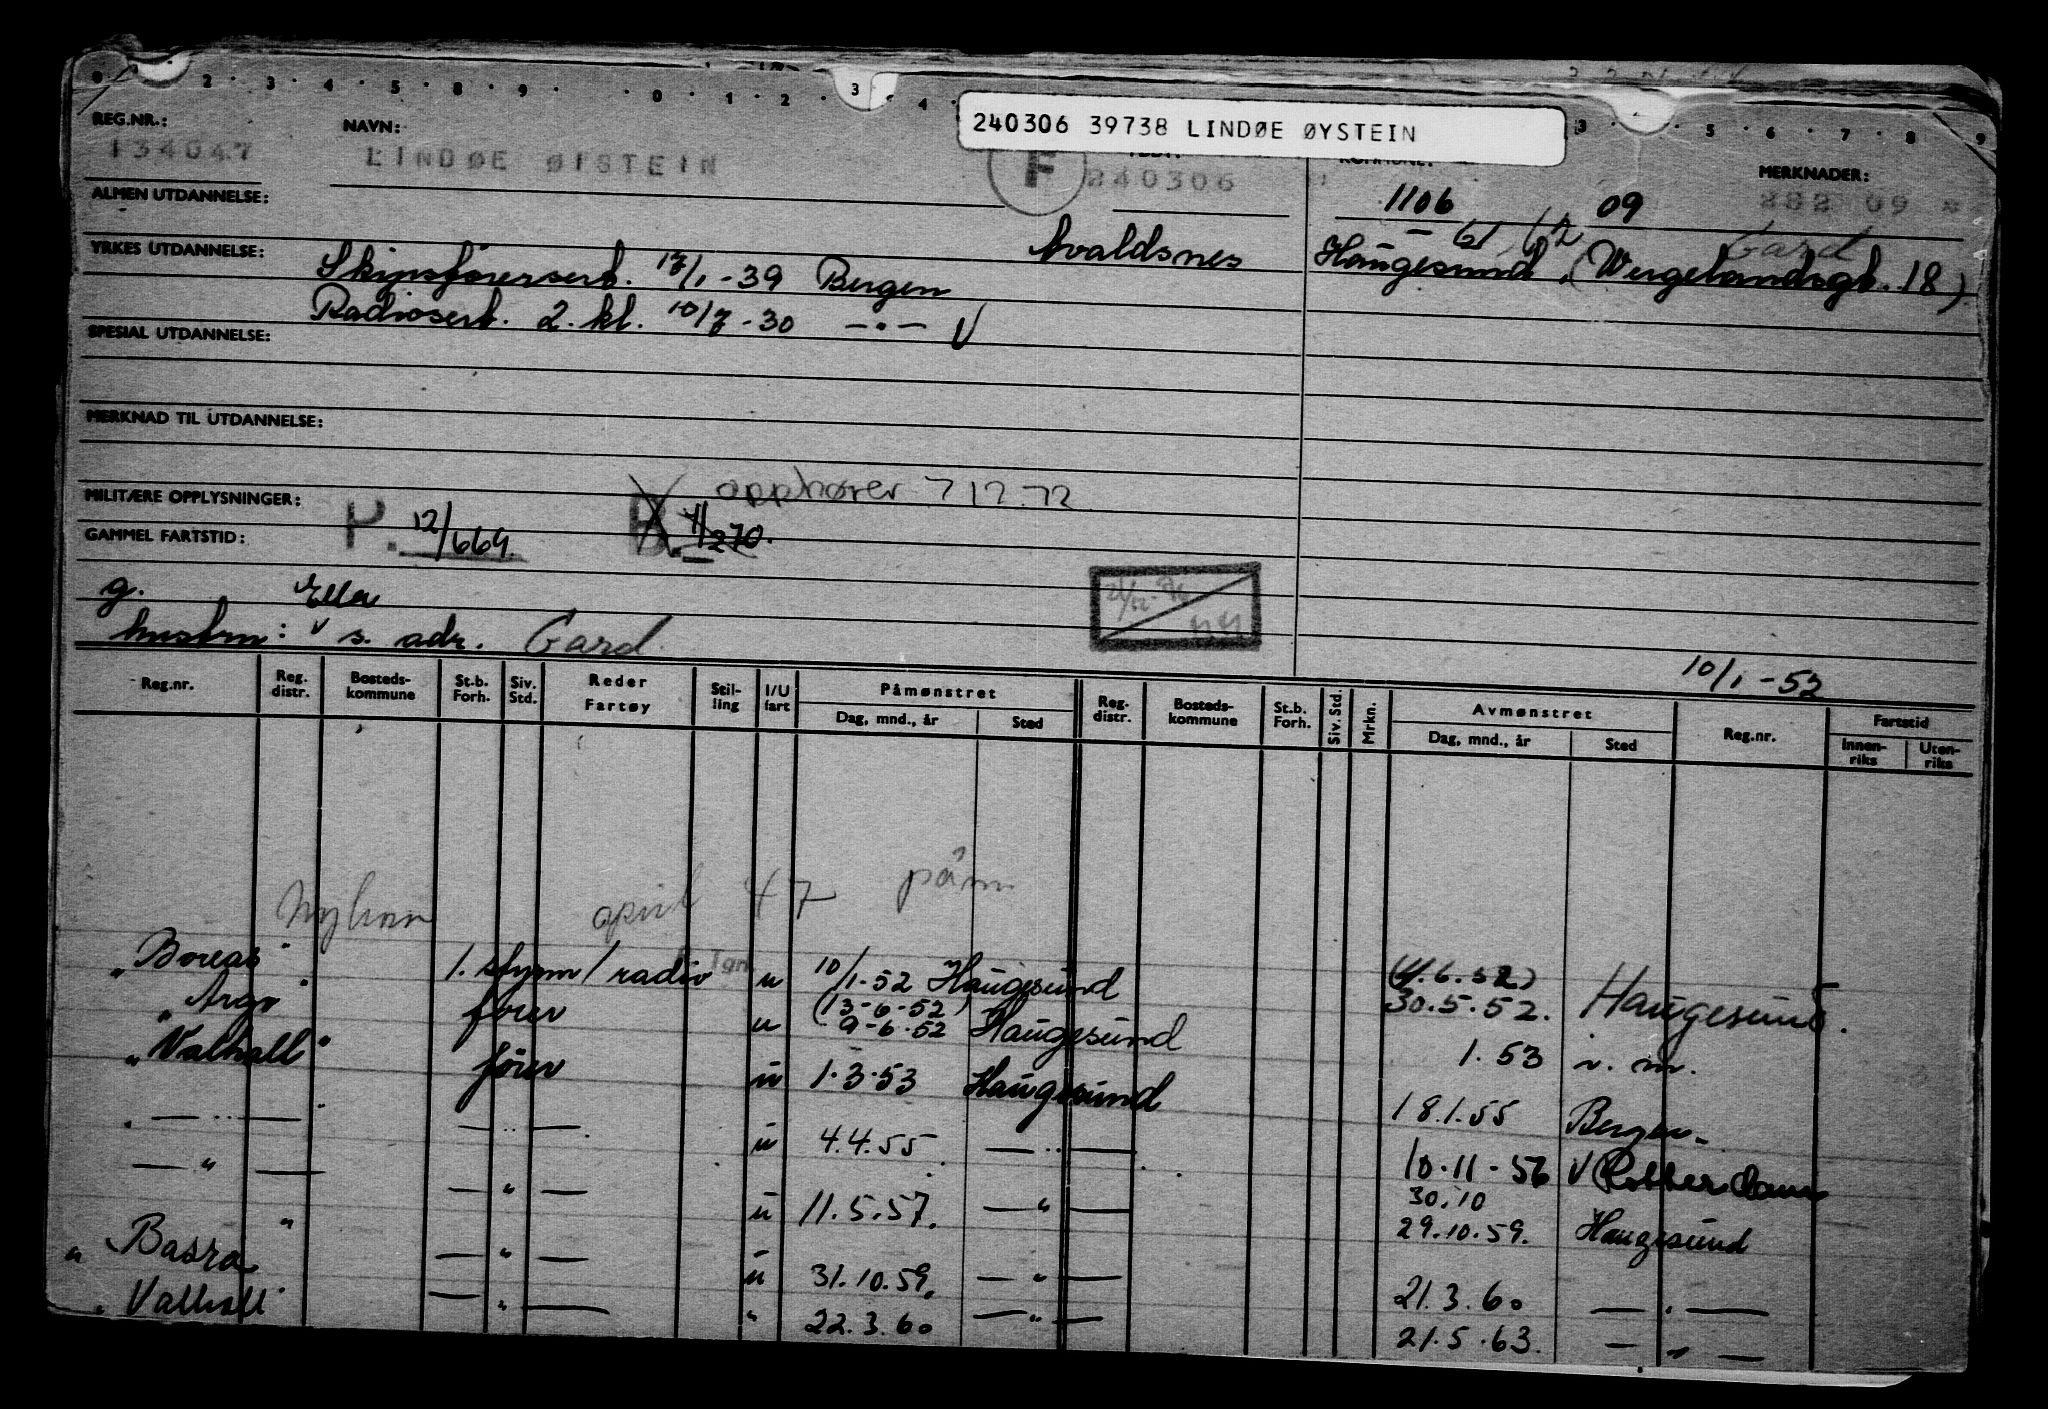 0 · 2 · 3 · 4 · 5 · 8 · 9 · · 0 · 1 · 2 · 3 4 3 · 5 · 6 · 7 · 8 · 9
240306 39738 LINDØE ØYSTEIN
REG.NR.: NAVN: MERKNADER:
134047 LINDØE ØISTEIN F 240306 1106 09 282 09
ALMEN UTDANNELSE: 61 62
YRKES UTDANNELSE: Avaldsnes Haugesund, (Wergelandsgt. 18) Gard
Skipsførersert. 17/1-39 Bergen
Radiosert. 2. kl. 10/7-30 — · — V
SPESIAL UTDANNELSE:
MERKNAD TIL UTDANNELSE:
MILITÆRE OPPLYSNINGER: P. 12/669. B. 11/270. opphører 7 12 72
GAMMEL FARTSTID:
g. Ella
hustru: v s. adr. Gard.
10/1-52
Reg.nr. Reg. distr. Bosteds-kommune St.b. Forh. Siv. Std. Reder Fartøy Stil-ling I/U fart Påmønstret Dag, mnd., år Sted Reg. distr. Bosteds-kommune St.b. Forh. Siv. Std. Mrkn. Avmønstret Dag, mnd., år Sted Reg.nr. Fartstid Innen-riks Uten-riks
april 47 påm
"Boreas" 1. styrm / radio u 10/1-52 Haugesund (4.6.52) 30.5.52. Haugesund.
"Argo" fører u (13-6-52) 9-6-52 Haugesund 1. 53
"Valhall" fører u 1.3.53 Haugesund 18.1.55 Bergen
— " — — " — u 4.4.55 — " — 10.11-56 V Rotterdam
— " — — " — u 11.5.57. — " — 30.10 29.10.59. Haugesund
"Basra" — " — u 31.10.59. — " — 21.3.60 — " —
"Valhall" — " — " 22.3.60 — " — 21.5.63. — " —